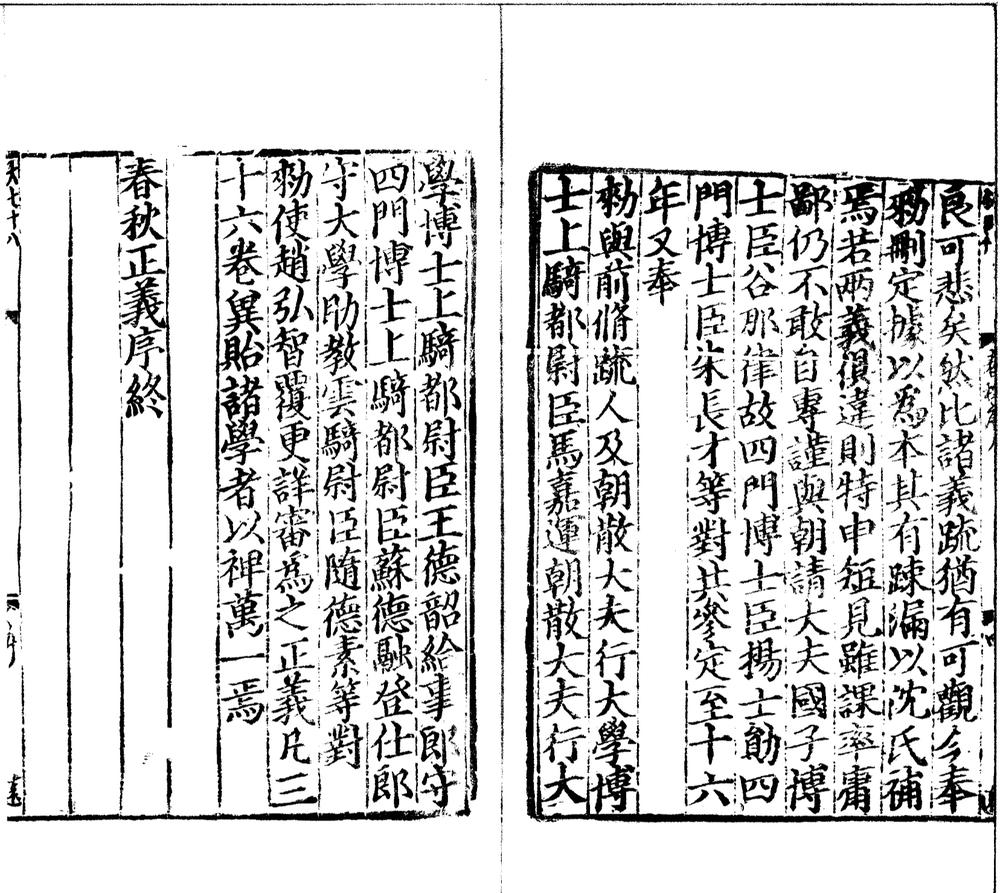 良可悲矣然比諸義疏猶有可觀今奉
勑刪定據以為本其有踈漏以沈氏補
焉若兩義俱違則特申短見雖課率庸
鄙仍不敢自專謹與朝請大夫國子博
士臣谷那律故四門博士臣楊士勛四
門博士臣朱長才等對共參定至十六
年又奉
勑與前脩疏人及朝散大夫行大學博
士上騎都尉臣馬嘉運朝散大夫行大
學博士上騎都尉臣王德韶給事郎守
四門博士上騎都尉臣蘇德融登仕郎
守大學助教雲騎尉臣隨德素等對
勑使趙弘智覆更詳審為之正義凡三
十六卷兾貽諸學者以裨萬一焉
春秋正義序終